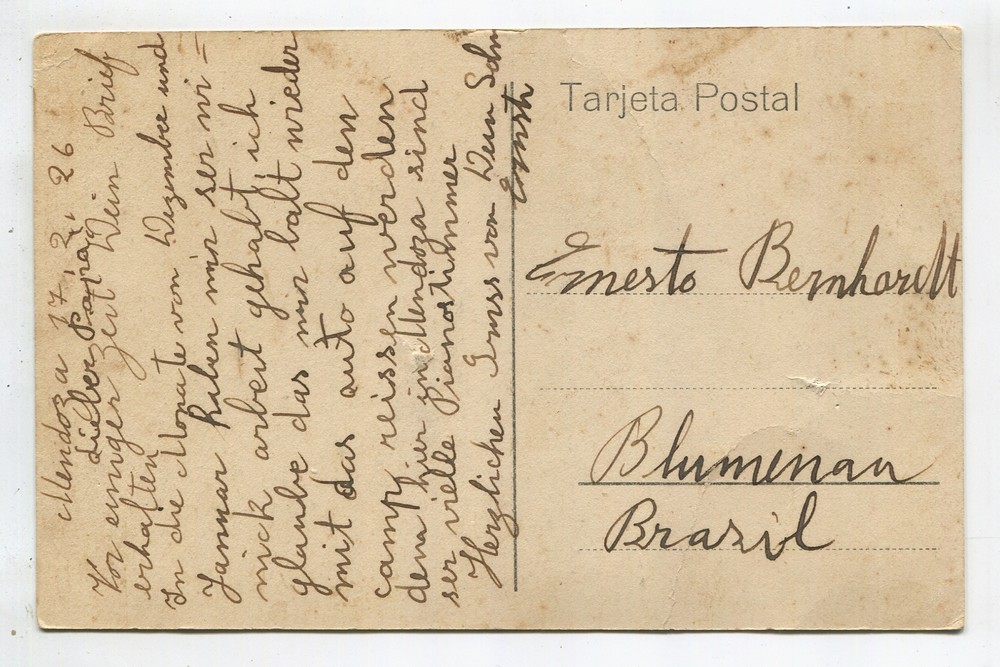 Mendoza 17. 2. 26
Lieber Papa,
Vor einiger zeit Dein Brief
erhalten
In die Monate von Dezembre und
Jannar haben mir ser wi=
nick arbeit gehabt, ich
glaube das mir balt wieder
mit das auto auf den
camp reissen werden
dena hier in Mendoza sind
ser vielle Pianostihmmer
Herzlichen Gruss von Dein Sohn
Ernst
Tarjeta Postal
Ernesto Bernhardt
Blumenau
Brazil